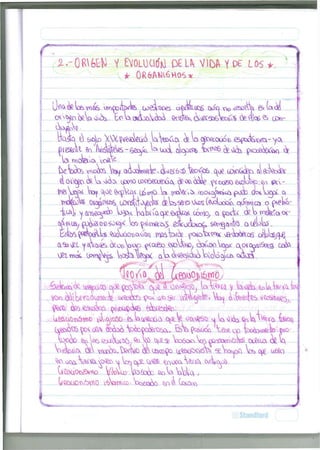 2.- ORIGEN Y EVOLUCIÓN DE LA VIDA Y DE LOS
* ORGANISMOS *
Una de las más importantes cuestiones científicas aún no resuelta es la del
origen de la vida. En la actualidad existen diversas teorías de ellas es con-
cluyente.
Hasta el siglo XVII prevaleció la teoría de la generación espontánea - ya
presente en Aristóteles - según la cual algunas formas de vida procederían de
la materia inerte
De todos modos hay actualmente diversas teorías que coinciden al entender
el origen de la vida como consecuencia de un doble proceso evolutivo: en pri-
mer lugar hay que explicar cómo la materia inorgánica pudo dar lugar a
moléculas orgánicas, constituyentes de los seres vivos (evolución química o prebió-
tica) y en segundo lugar, habría que explicar cómo, a partir de la materia or-
gánica, pudieron surgir las primeras estructuras, semejantes a células.
Estas evolucionarían más tarde para formar verdaderas células que
a su vez y a través de un largo proceso evolutivo, darían lugar a organismos cada
vez más complejos hasta llegar a la diversidad biológica actual.
Teoría del Creacionismo
Sistema de creencias que postula que el universo, la tierra y la vida en la tierra fue
ron deliberadamente creados por un ser inteligente. Hay diferentes visiones,
pero dos escuelas principales sobresalen:
creacionismo religioso es la creencia que el universo y la vida en la tierra fueron
creados por una deidad todopoderosa. Esta posición tiene un fundamento pro
fundo en las escrituras, en las que se basan los pensamientos acerca de la
historia del mundo. Dentro del campo creacionista se hayan los que creen
en una tierra joven y los que creen en una tierra antigua.
Creacionismo bíblico basado en la biblia.
Creacionismo islámico basado en el Corán
Standford